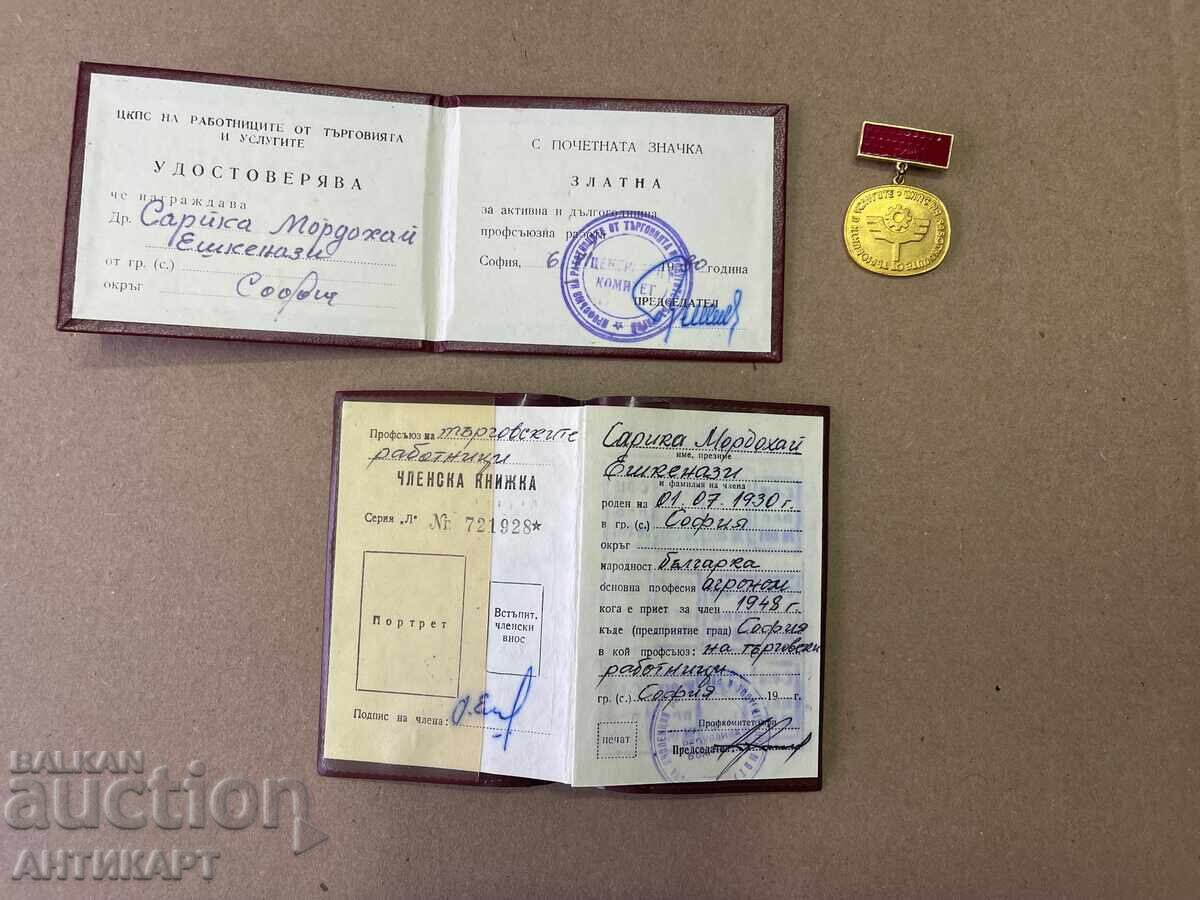 ЦКПС НА РАБОТНИЦИТЕ ОТ ТЪРГОВИЯТА
И УСЛУГИТЕ
УДОСТОВЕРЯВА
че награждава
Др. Сарика Мордохай
Ешкенази
от гр. (с.)
окръг София
С ПОЧЕТНАТА ЗНАЧКА
ЗЛАТНА
за активна и дългогодишна
профсъюзна
София, 6 19 80 година
КОМИТЕТ
ПРЕДСЕДАТЕЛ
Профсъюз на търговските
работници
ЧЛЕНСКА КНИЖКА
Серия „Л" № 721928*
Портрет
Встъпит.
членски
внос
Подпис на члена:
Сарика Мордохай
име, презиме
Ешкенази
и фамилия на члена
роден на 01.07.1930 г.
в гр. (с.) София
окръг
народност българка
основна професия агроном
кога е приет за член 1948 г.
къде (предприятие град) София
в кой профсъюз: на търговски
работници
гр. (с.) София 19 г.
Профкомитет
печат
Председател:
BALKAN
auction
АНТИКАРТ